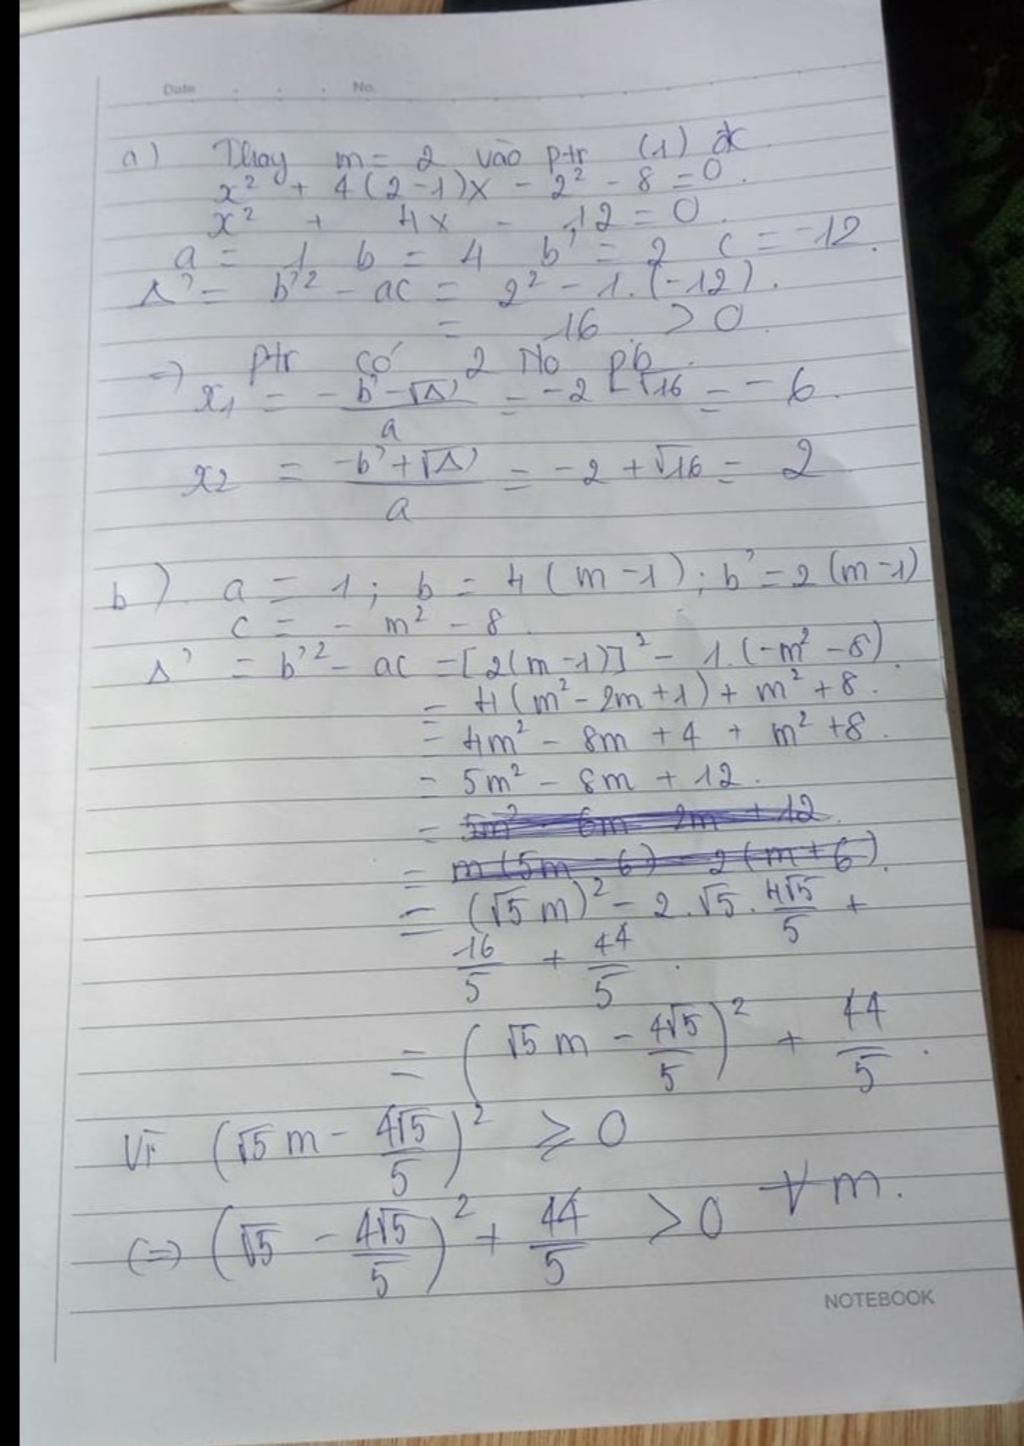 Date . . . No.
a) Thay m = 2 vào ptr (1) đc
x² + 4(2-1)x - 2² - 8 = 0.
x² + 4x - 12 = 0.
a = 1 b = 4 b' = 2 c = -12.
Δ' = b'² - ac = 2² - 1.(-12).
= 16 > 0.
=> ptr có 2 No pb.
x₁ = (-b' - √Δ')/a = -2 - √16 = -6.
x₂ = (-b' + √Δ')/a = -2 + √16 = 2
b) a = 1; b = 4(m-1); b' = 2(m-1)
c = - m² - 8.
Δ' = b'² - ac = [2(m-1)]² - 1.(-m² - 8).
= 4(m² - 2m + 1) + m² + 8.
= 4m² - 8m + 4 + m² + 8.
= 5m² - 8m + 12.
= 5m² - 6m - 2m + 12
= m(5m - 6) - 2(m + 6).
= (√5 m)² - 2.√5.4√5/5 +
16/5 + 44/5.
= (√5 m - 4√5/5)² + 44/5.
Vì (√5 m - 4√5/5)² ⩾ 0
(=>) (√5 - 4√5/5)² + 44/5 > 0 ∀ m.
NOTEBOOK